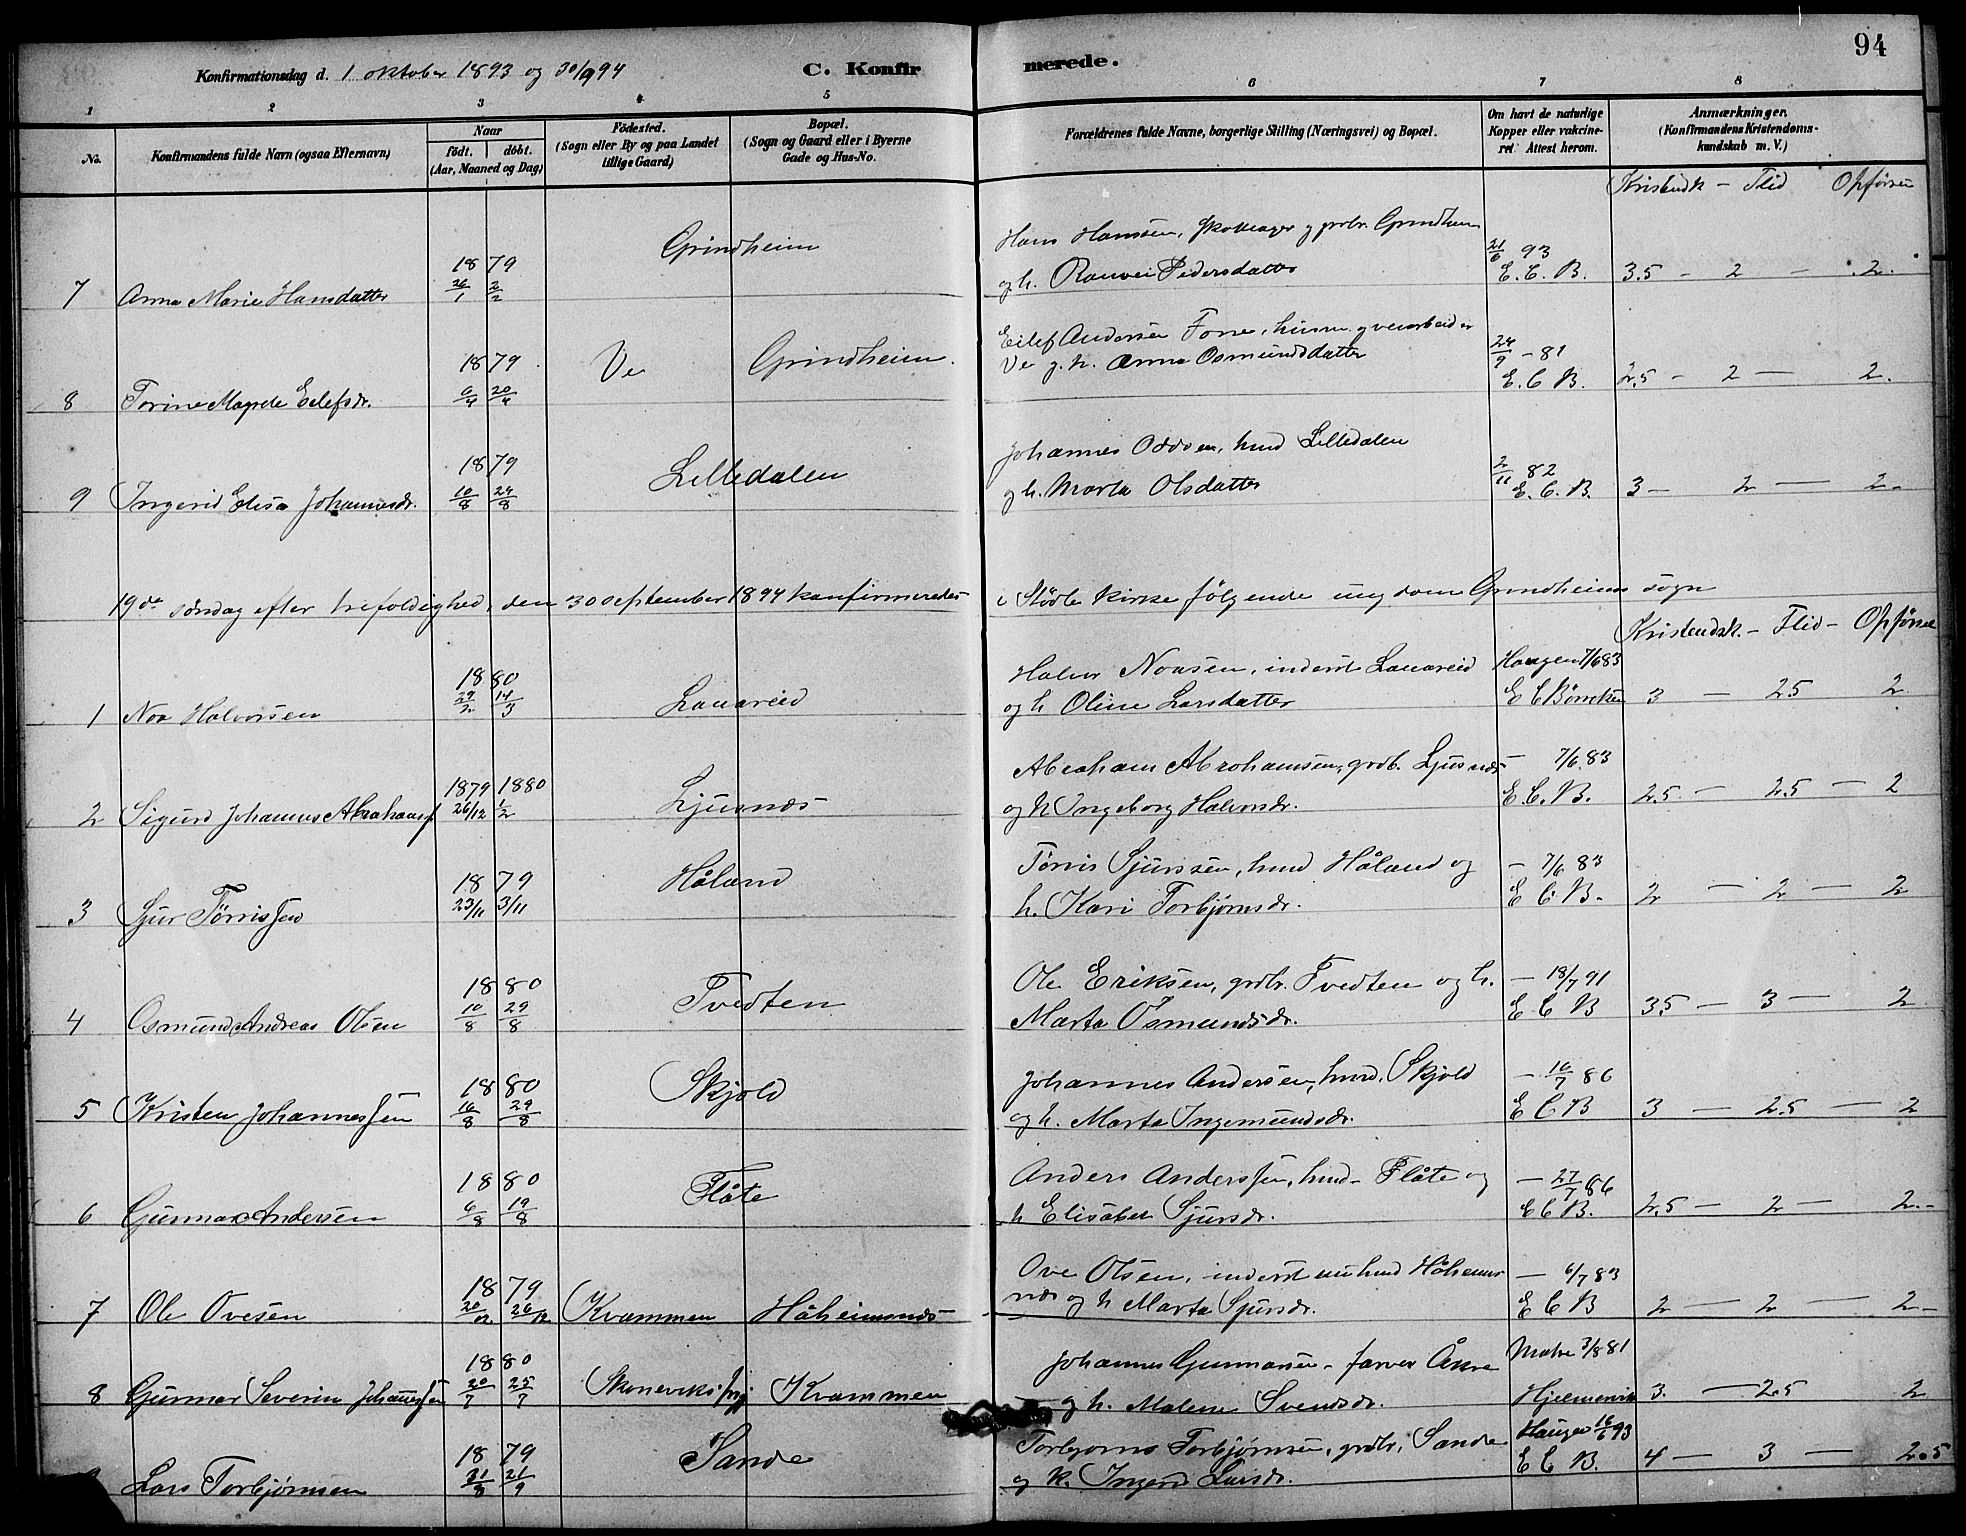 94
Konfirmationsdag d. 1 oktober 1893 og 30/9 94
C. Konfirmerede.
1 2 3 4 5 6 7 8
No.
Konfirmandens fulde Navn (ogsaa Efternavn)
Naar
født. døbt.
(Aar, Maaned og Dag)
Fødested.
(Sogn eller By og paa Landet
tillige Gaard)
Bopæl.
(Sogn og Gaard eller i Byerne
Gade og Hus-No.
Forældrenes fulde Navne, borgerlige Stilling (Næringsvei) og Bopæl.
Om havt de naturlige
Kopper eller vakcineret Attest herom.
Anmærkninger.
(Konfirmandens Kristendomskundskab m. V.)
Kristendk – Flid Opførsel
7 Anna Marie Hansdatter 1879 26/1 2/2 Grindheim
Hans Hanssen, grbr. Grindheim
og h. Ranvei Pedersdatter
21/6 93
E. C. B. 3.5 – 2 – 2.
8 Torine Magrete Eilefsdr. 1879 6/4 20/4 Ve Grindheim.
Eilef Andersen Fosse, husm.
Ve g. h. Anna Osmundsdatter
24/9 – 81
E. C. B. 2,5 – 2 – 2.
9 Ingerid Elisa Johannesdr. 1879 10/8 24/8 Lilledalen
Johannes Oddsen, husm Lilledalen
og h. Marta Olsdatter
2/11 82
E. C. B. 3 – 2 – 2.
19de søndag efter trefoldighed, den 30 september 1894 konfirmeredes i Stødle kirke følgende ungdom Grindheims sogn
Kristendsk. – Flid – Opførsel
1 Noa Halvorsen 1880 29/2 14/3 Lauareid
Halvor Noasen, inderst Lauareid
og h Oline Larsdatter
Haugen 7/6 83
E C Børretzen 3 – 25 2
2 Sigurd Johannes Abrahamsf 1879 26/12 1880 1/2 Ljusnæs
Abraham Abrahamsen, grdb. Ljusnæs
og h Ingeborg Halvorsdr.
– 7/6 83
E. C. B. 2.5 – 2.5 – 2
3 Sjur Tørrissen 1879 23/11 3/11 Håland
Tørris Sjurssen, husm Håland og
h. Kari Torbjørnsdr.
– 7/6 83
E C B. 2 – 2 – 2
4 Osmund Andreas Olsen 1880 10/8 29/8 Tvedten
Ole Eriksen, grdbr. Tvedten og h.
Marta Osmundsdr.
– 18/7 91
E C B 35 – 3 – 2
5 Kristen Johannessen 1880 16/8 29/8 Skjold
Johannes Andersen, husm. Skjold
og h. Marta Ingemundsdr.
– 16/7 86
E C B 3 – 2.5 – 2
6 Gunnar Andersen 1880 6/8 19/8 Flåte
Anders Anderssen, husm – Flåte og
h Elisabet Sjursdr.
– 27/7 86
E C B. 2,5 – 2 – 2.
7 Ole Ovesen 1879 20/12 26/12 Kvammen Håheimsnæs
Ove Olsen, inderst nu husm Håheimsnæs og h Marta Sjursdr.
– 6/7 83
E C B 2 – 2 – 2
8 Gunnar Severin Johannessen 1880 20/7 25/7 Skoneviks Kvammen
Johannes Gunnarsen – farver Åkre
og h. Malene Svendsdr.
Matre 3/8 81
Hjelmervik 3. – 2.5 2
Lars Torbjørnsen 1879 31/8 21/9 Sande
Torbjørns Torbjørnsen, grdbr. Sande
og h. Ingerd Larsdr.
Haugen 16/6 93
E C B. 4 – 3 – 2.5